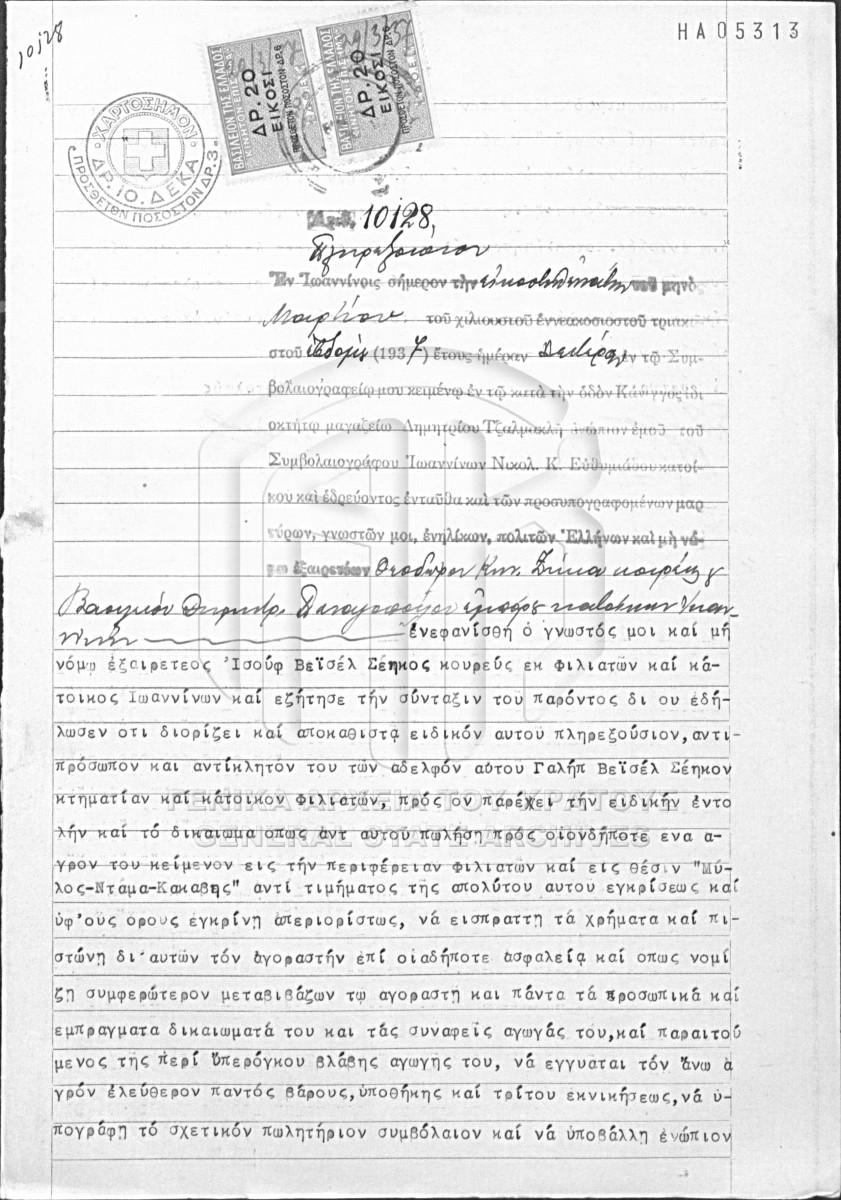 10128
ΗΑ05313
ΒΑΣΙΛΕΙΟΝ ΤΗΣ ΕΛΛΑΔΟΣ
ΔΡ. 20
ΕΙΚΟΣΙ
ΒΑΣΙΛΕΙΟΝ ΤΗΣ ΕΛΛΑΔΟΣ
ΔΡ. 20
ΕΙΚΟΣΙ
ΧΑΡΤΟΣΗΜΟΝ
ΔΡ. 10. ΔΕΚΑ
ΠΡΟΣΘΕΤΟΝ ΠΟΣΟΣΤΟΝ ΔΡ. 3.
Ἀριθ. 10128,
Πληρεξούσιον
Ἐν Ἰωαννίνοις σήμερον τὴν εἰκοστὴν ἐνάτην τοῦ μηνὸς
Μαρτίου τοῦ χιλιοστοῦ ἐννεακοσιοστοῦ τριακο
στοῦ ἑβδόμου (1937) ἔτους ἡμέραν Δευτέραν ἐν τῷ Συμ-
βολαιογραφείῳ μου κειμένῳ ἐν τῷ κατὰ τὴν ὁδὸν Κάνιγγος ἰδι
οκτήτῳ μαγαζείῳ Δημητρίου Τζαλμακλῆ ἐνώπιον ἐμοῦ τοῦ
Συμβολαιογράφου Ἰωαννίνων Νικολ. Κ. Εὐθυμιάδου κατοί-
κου καὶ ἑδρεύοντος ἐνταῦθα καὶ τῶν προσυπογραφομένων μαρ
τύρων, γνωστῶν μοι, ἐνηλίκων, πολιτῶν Ἑλλήνων καὶ μὴ νό-
μῳ ἐξαιρετέων Θεοδώρου Κων. Ζήκα κουρέως &
Βασιλείου Δημητρ. Παναγοπούλου κατοίκων Ἰωαν-
νίνων ἐνεφανίσθη ὁ γνωστός μοι καί μή
νόμῳ ἐξαιρετεος Ἰσούφ Βεϊσέλ Σέηκος κουρεύς εκ Φιλιατῶν καί κά-
τοικος Ιωαννίνων καί εζήτησε τήν σύνταξιν τοῦ παρόντος δι ου ἐδή-
λωσεν οτι διορίζει καί αποκαθιστᾳ ειδικόν αυτου πληρεξούσιον,αντι-
πρόσωπον και αντίκλητόν του τῶν αδελφόν αὐτου Γαλήπ Βεϊσέλ Σέηκον
κτηματίαν καί κάτοικον Φιλιατῶν, πρός ον παρέχει τήν ειδικήν ἐντο
λήν καί τό δικαιωμα οπως ἀντ αυτοῦ πωλήσῃ πρός οἱονδήποτε ενα α-
γρόν του κείμενον εις τήν περιφέρειαν Φιλιατῶν καί εις θέσιν "Μύ-
λος-Ντάμα-Κακαβης" αντί τιμήματος τῆς απολύτου αυτου εγκρίσεως καί
ὑφ'ους ορους ἐγκρίνῃ απεριορίστως, νά εισπραττῃ τά χρήματα καί πι-
στώνῃ δι'αυτῶν τόν ἀγοραστήν ἐπί οἱαδήποτε ασφαλείᾳ καί οπως νομί
ζῃ συμφερώτερον μεταβιβάζων τῳ αγοραστῃ και πάντα τά προσωπικά καί
εμπραγματα δικαιωματά του και τάς συναφεῖς αγωγάς του,καί παραιτού
μενος τῆς περί ὑπερόγκου βλάβης αγωγης του, νά εγγυαται τόν ἄνω ἀ
γρόν ἐλεύθερον παντός βάρους,ὑποθήκης καί τρίτου εκνικήσεως,νά ὑ-
πογράφῃ τό σχετικόν πωλητήριον συμβόλαιον καί νά ὑποβάλλῃ ἐνώπιον
ΓΕΝΙΚΑ ΑΡΧΕΙΑ ΤΟΥ ΚΡΑΤΟΥΣ
GENERAL STATE ARCHIVES